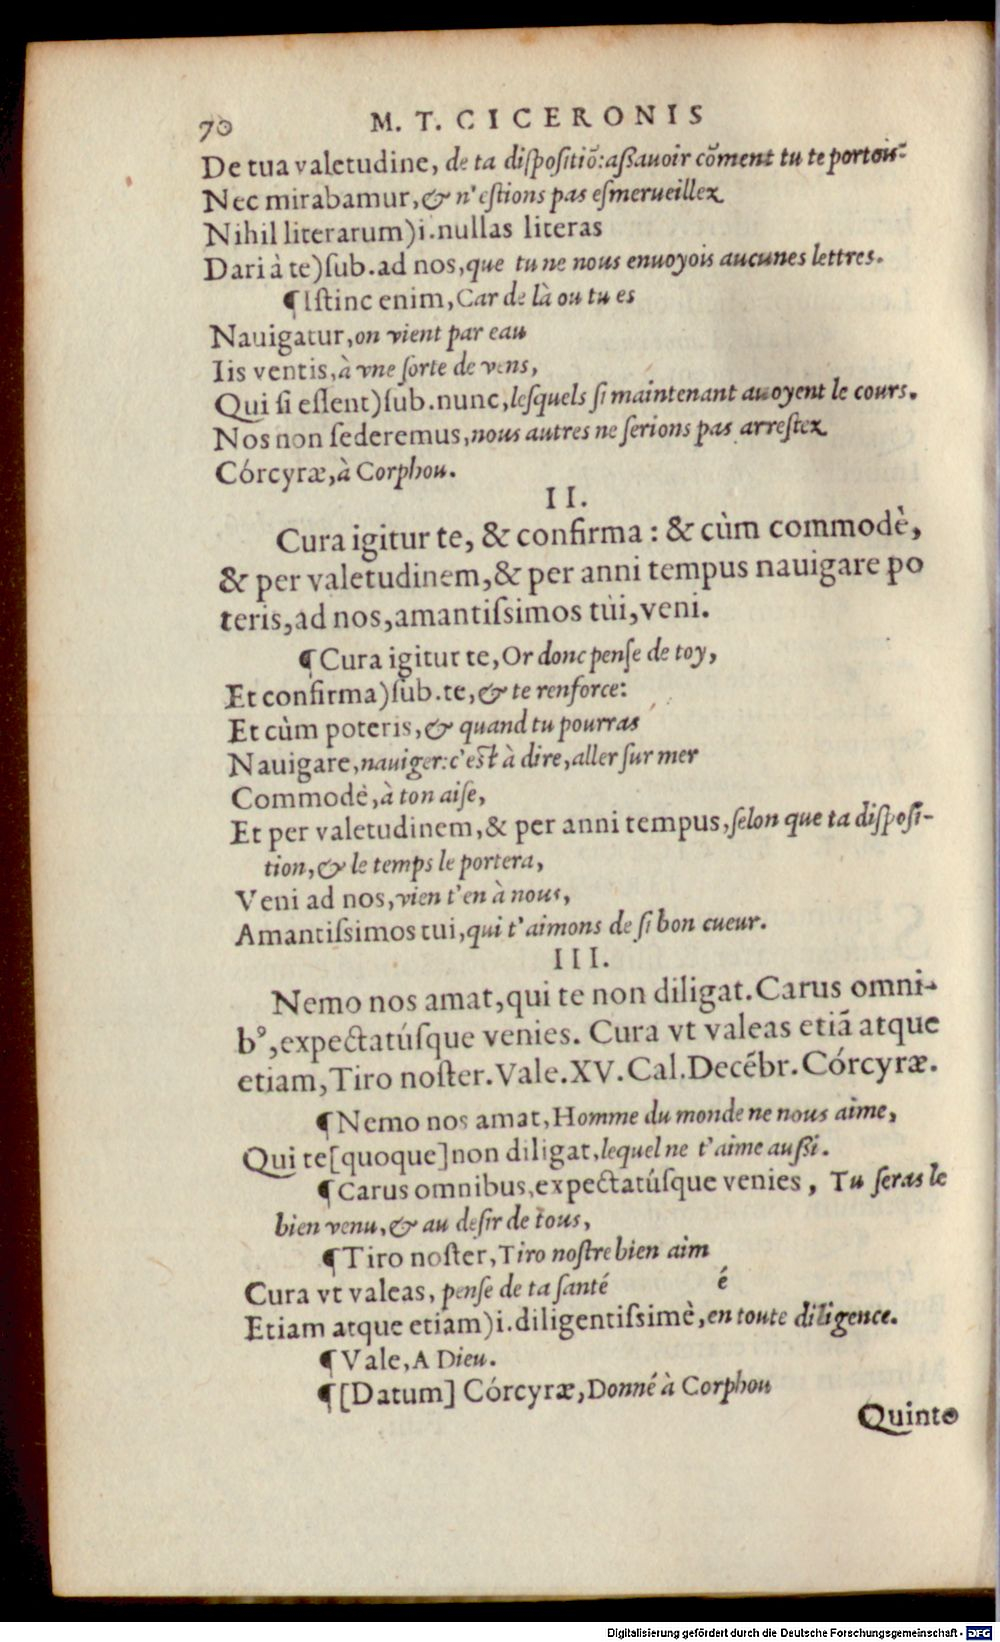 70 M. T. CICERONIS
De tua valetudine, de ta diſpoſitiõ: aßauoir cõment tu te portois
Nec mirabamur, & n'eſtions pas eſmerueillez
Nihil literarum)i.nullas literas
Dari à te)ſub.ad nos, que tu ne nous enuoyois aucunes lettres.
¶Iſtinc enim, Car de là ou tu es
Nauigatur, on vient par eau
Iis ventis, à vne ſorte de vens,
Qui ſi eſſent)ſub.nunc, leſquels ſi maintenant auoyent le cours.
Nos non ſederemus, nous autres ne ſerions pas arreſtez
Córcyræ, à Corphou.
II.
Cura igitur te, & confirma : & cùm commodè,
& per valetudinem, & per anni tempus nauigare po
teris, ad nos, amantiſsimos tùi, veni.
¶Cura igitur te, Or donc penſe de toy,
Et confirma)ſub.te, & te renforce:
Et cùm poteris, & quand tu pourras
Nauigare, nauiger: c'eſt à dire, aller ſur mer
Commodè, à ton aiſe,
Et per valetudinem, & per anni tempus, ſelon que ta diſpoſi-
tion, & le temps le portera,
Veni ad nos, vien t'en à nous,
Amantiſsimos tui, qui t'aimons de ſi bon cueur.
III.
Nemo nos amat, qui te non diligat. Carus omni-
bꝰ, expectatúſque venies. Cura vt valeas etiã atque
etiam, Tiro noſter. Vale. XV. Cal. Decẽbr. Córcyræ.
¶Nemo nos amat, Homme du monde ne nous aime,
Qui te[quoque]non diligat, lequel ne t'aime außi.
¶Carus omnibus, expectatúſque venies, Tu ſeras le
bien venu, & au deſir de tous,
¶Tiro noſter, Tiro noſtre bien aim
é
Cura vt valeas, penſe de ta ſanté
Etiam atque etiam)i.diligentiſsimè, en toute diligence.
¶Vale, A Dieu.
¶[Datum] Córcyræ, Donné à Corphou
Quinto
Digitalisierung gefördert durch die Deutsche Forschungsgemeinschaft - DFG